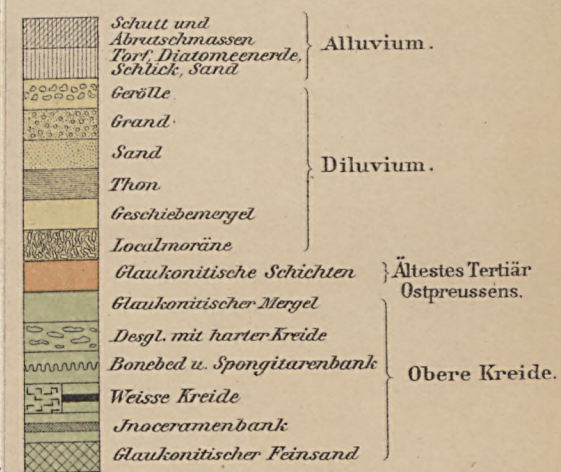 Schutt und
Abrutschmassen
Torf, Diatomeenerde,
Schlick, Sand
Alluvium.
Gerölle
Grand
Sand
Thon
Geschiebemergel
Localmoräne
Diluvium.
Glaukonitische Schichten
Ältestes Tertiär
Ostpreussens.
Glaukonitischer Mergel
Desgl. mit harter Kreide
Bonebed u. Spongitarenbank
Weisse Kreide
Jnoceramenbank
Glaukonitischer Feinsand
Obere Kreide.